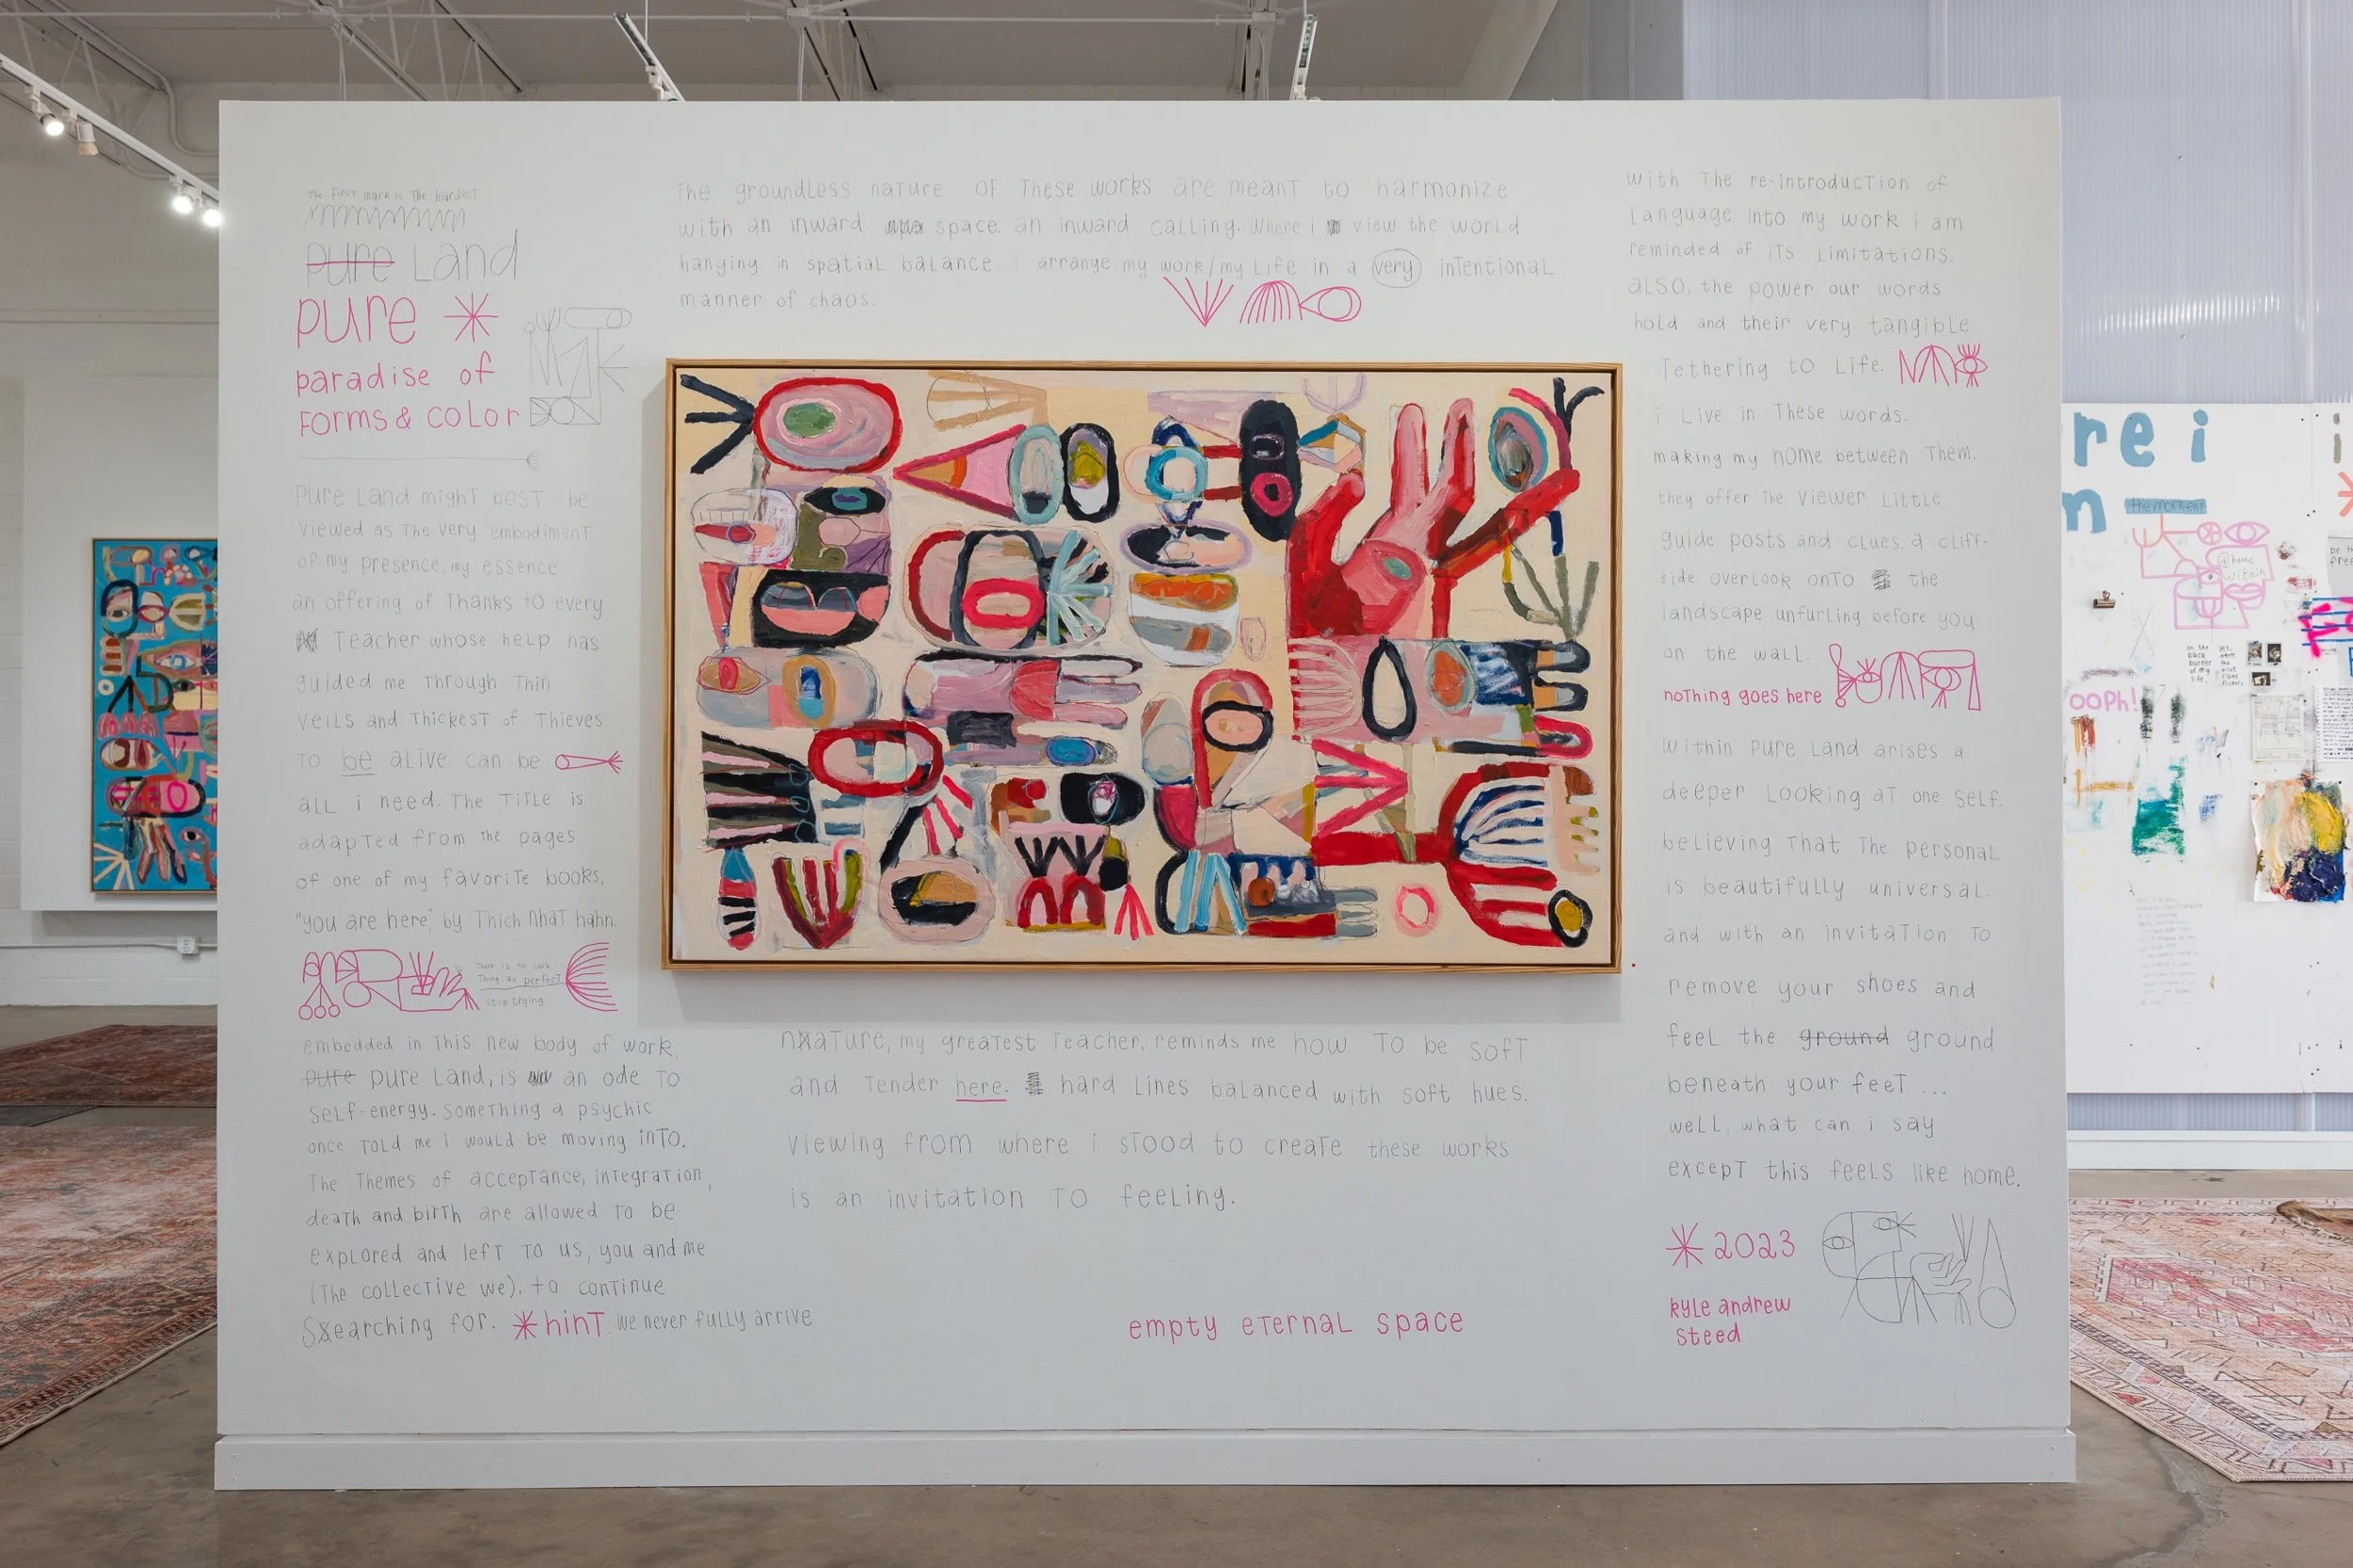 The First mark is The hardest
pure Land
pure
paradise of
Forms & coLor
pure Land mighT besT be
viewed as The very embodimenT
of my presence, my essence.
an offering of Thanks to every
Teacher whose heLp has
guided me Through Thin
veiLs and ThickesT of Thieves
To be aLive can be
aLL i need. The TiTLe is
adapTed from the pages
of one of my favoriTe books,
"you are here," by Thich NhaT hahn.
There is no such
Thing as perfecT
stop trying
embedded in This new body of work,
pure pure Land, is an ode To
seLf-energy. someThing a psychic
once ToLd me i wouLd be moving inTo.
The Themes of accepTance, inTegraTion,
deaTh and birTh are allowed to be
expLored and Left To us, you and me
(The coLLecTive we), to conTinue
Searching for. hinT: we never fuLLy arrive
The groundLess naTure of These works are meanT to harmonize
with an inward space. an inward caLLing. Where i view the worLd
hanging in spatiaL baLance. i arrange my work/my Life in a very inTenTionaL
manner of chaos.
naTure, my greaTesT Teacher, reminds me how To be sofT
and Tender here. hard Lines baLanced with soft hues.
viewing from where i sTood to creaTe these works
is an invitation To feeLing.
empty eTernaL space
with The re-introducTion of
Language into my work i am
reminded of iTs Limitations.
aLso, the power our words
hold and their very tangibLe
TeThering to Life.
i Live in These words.
making my home between Them.
they offer The viewer LittLe
guide posts and cLues. a cLiff-
side overLook onTo the
Landscape unfurLing before you
on the waLL.
noThing goes here
within pure Land arises a
deeper Looking aT one seLf.
beLieving ThaT The personaL
is beautifuLLy universaL.
and with an invitaTion To
remove your shoes and
feeL the ground ground
beneath your feeT ...
weLL, what can i say
excepT this feeLs like home.
2023
kyLe andrew
sTeed
re i
n
the moment
@home
within
on the
back
burner
of my
life.
OOPh!